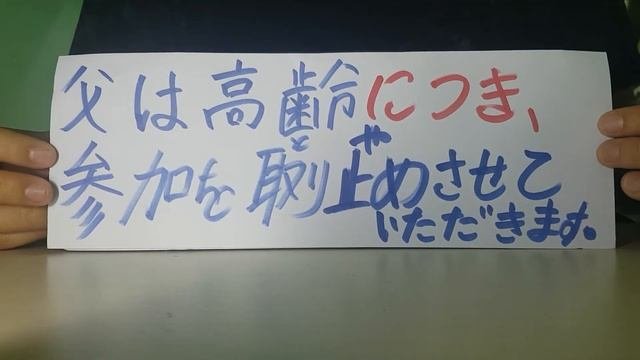 父は高齢につき、
参加を取り止めさせて
いただきます。
とや